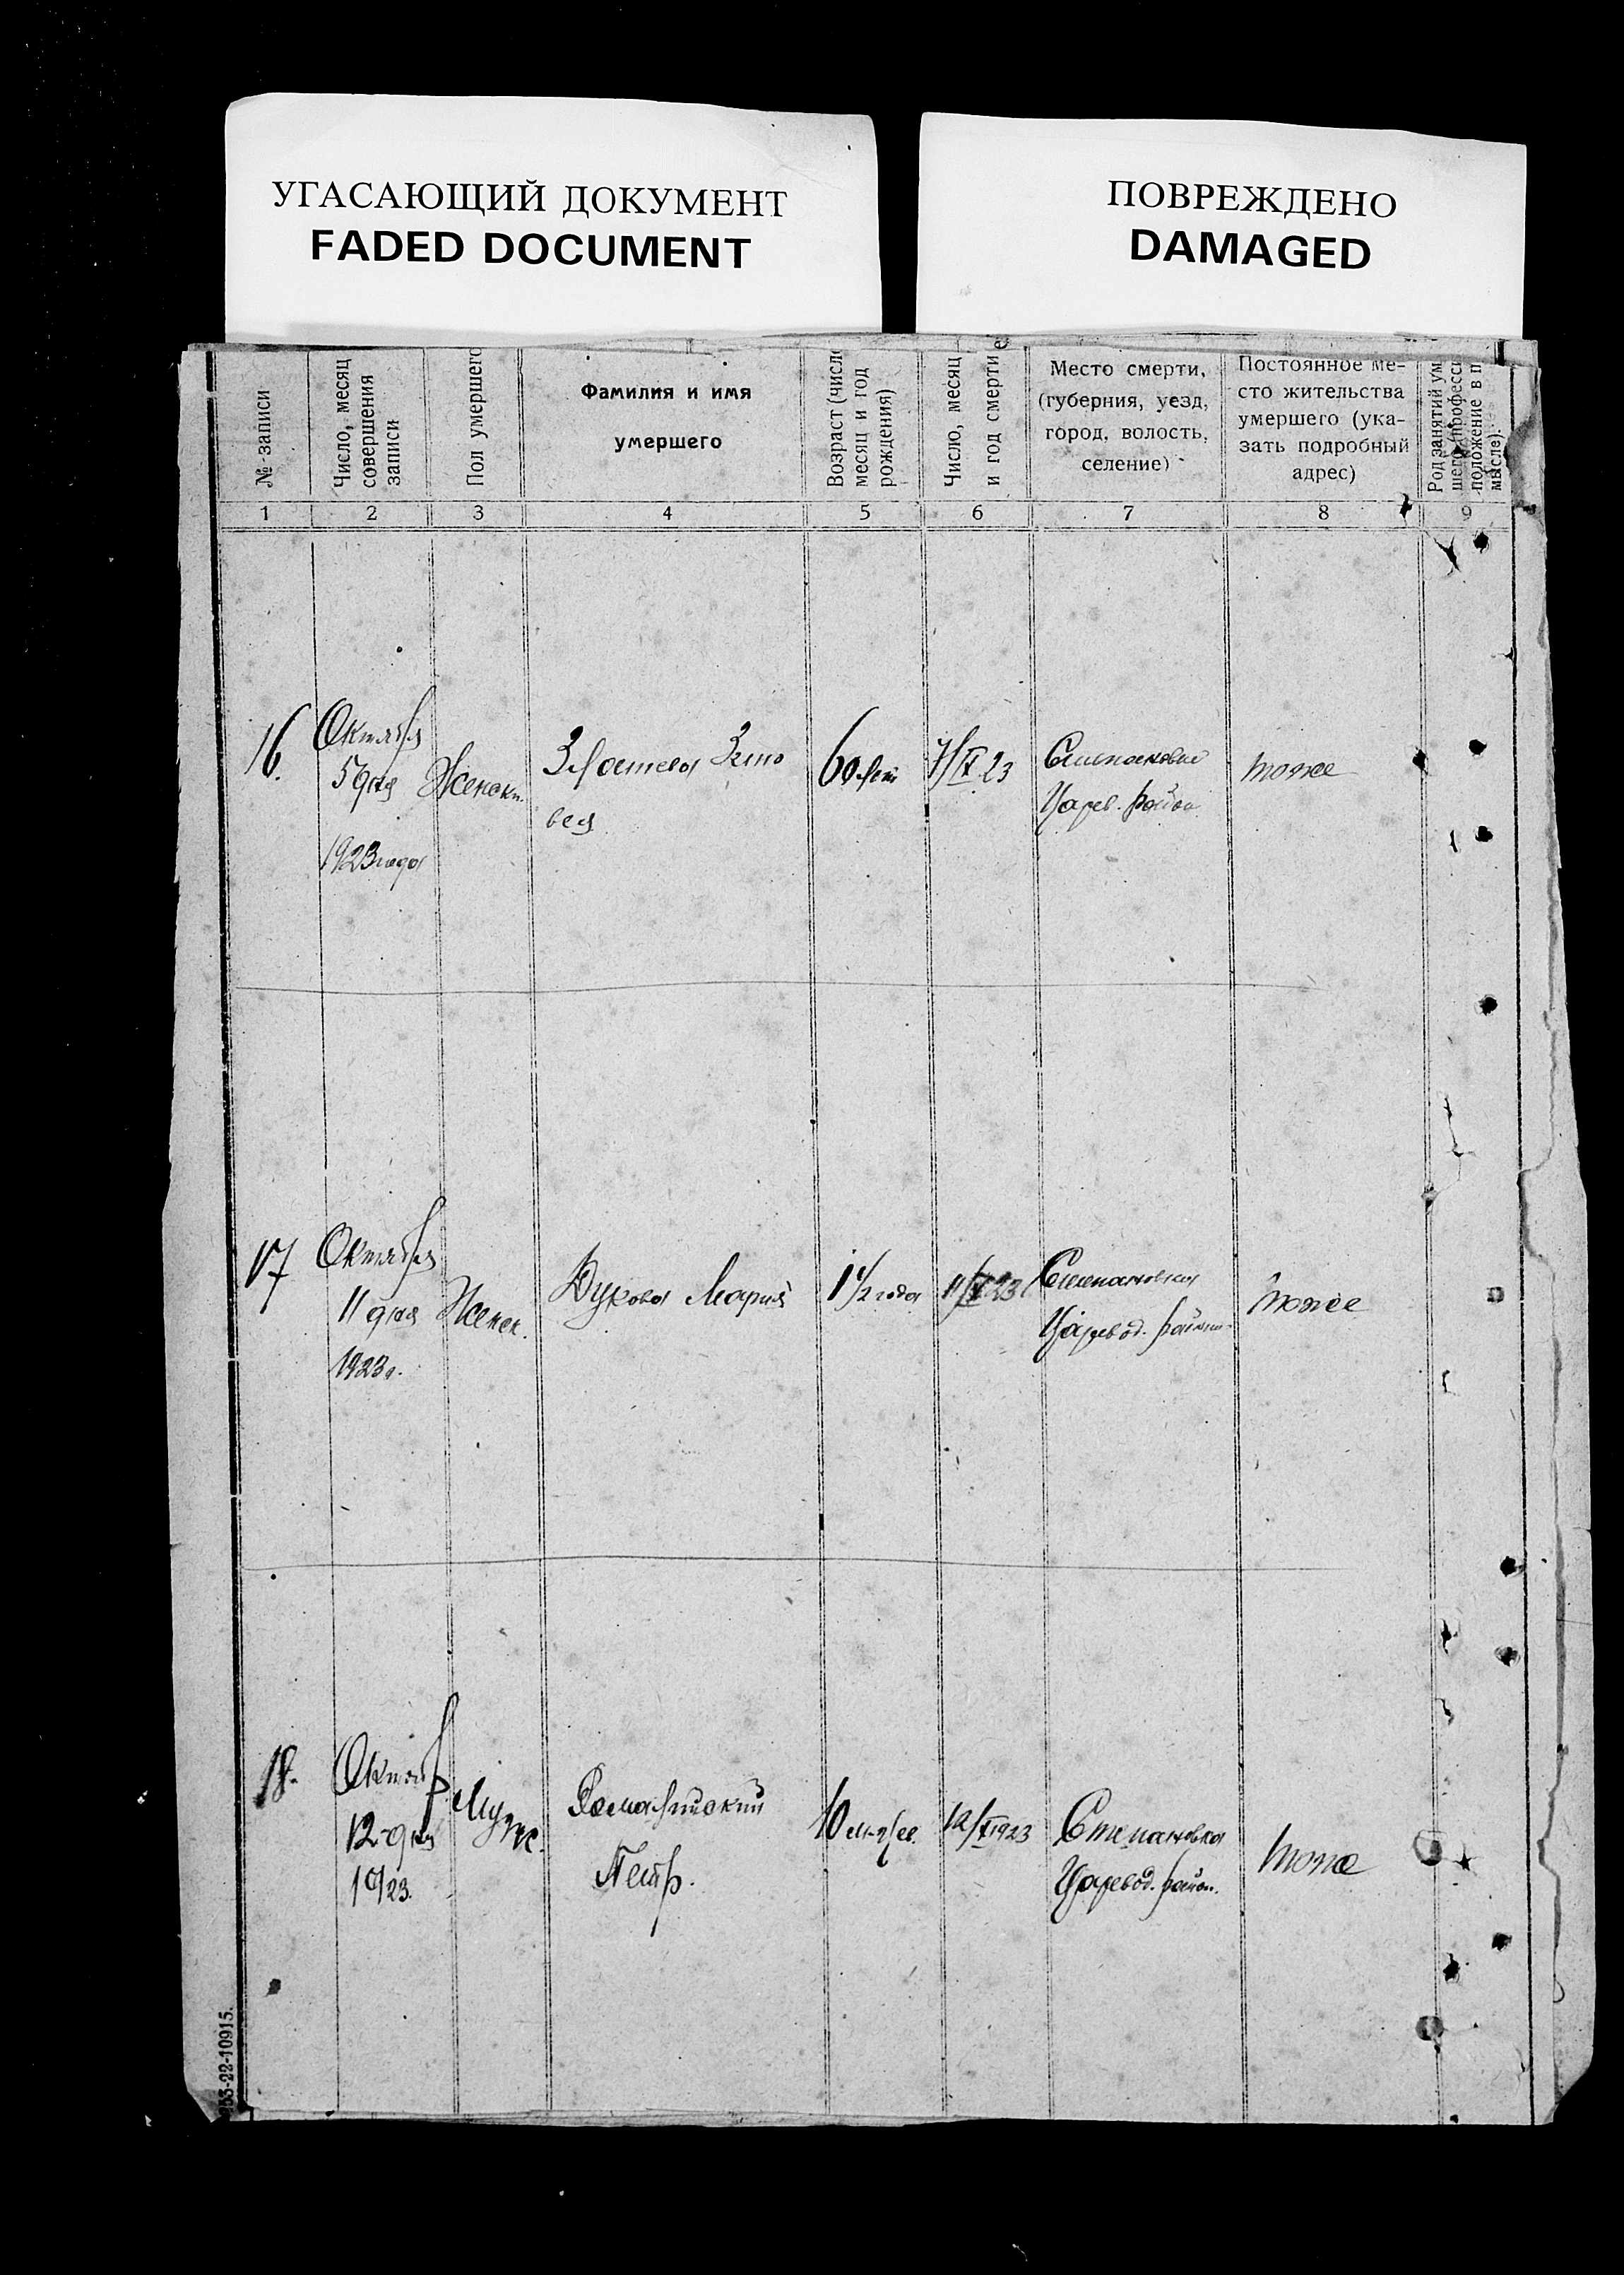 УГАСАЮЩИЙ ДОКУМЕНТ
FADED DOCUMENT
ПОВРЕЖДЕНО
DAMAGED
№ записи
Число, месяц
совершения
записи
Пол умершего
Фамилия и имя
умершего
Возраст (число
месяц и год
рождения)
Число, месяц
и год смерти
Место смерти,
(губерния, уезд,
город, волость,
селение)
Постоянное ме-
сто жительства
умершего (ука-
зать подробный
адрес)
Род занятий ум
шего (професси
положение в п
мысле).
1 2 3 4 5 6 7 8 9
16.
Октября
5 дня
1923 года
Женск.
60 лет
23
Степановка
Царев. район
тоже
17
Октября
11 дня
1923 г.
Женск.
Вукова Мария
1 1/2 года
11/X 23
Степановка
Царевод. район
тоже
18.
Октяб
12 дня
1923.
Муж.
Петр.
10
12/X 1923
Степановка
Царевод. район.
тоже
253-22-10915.